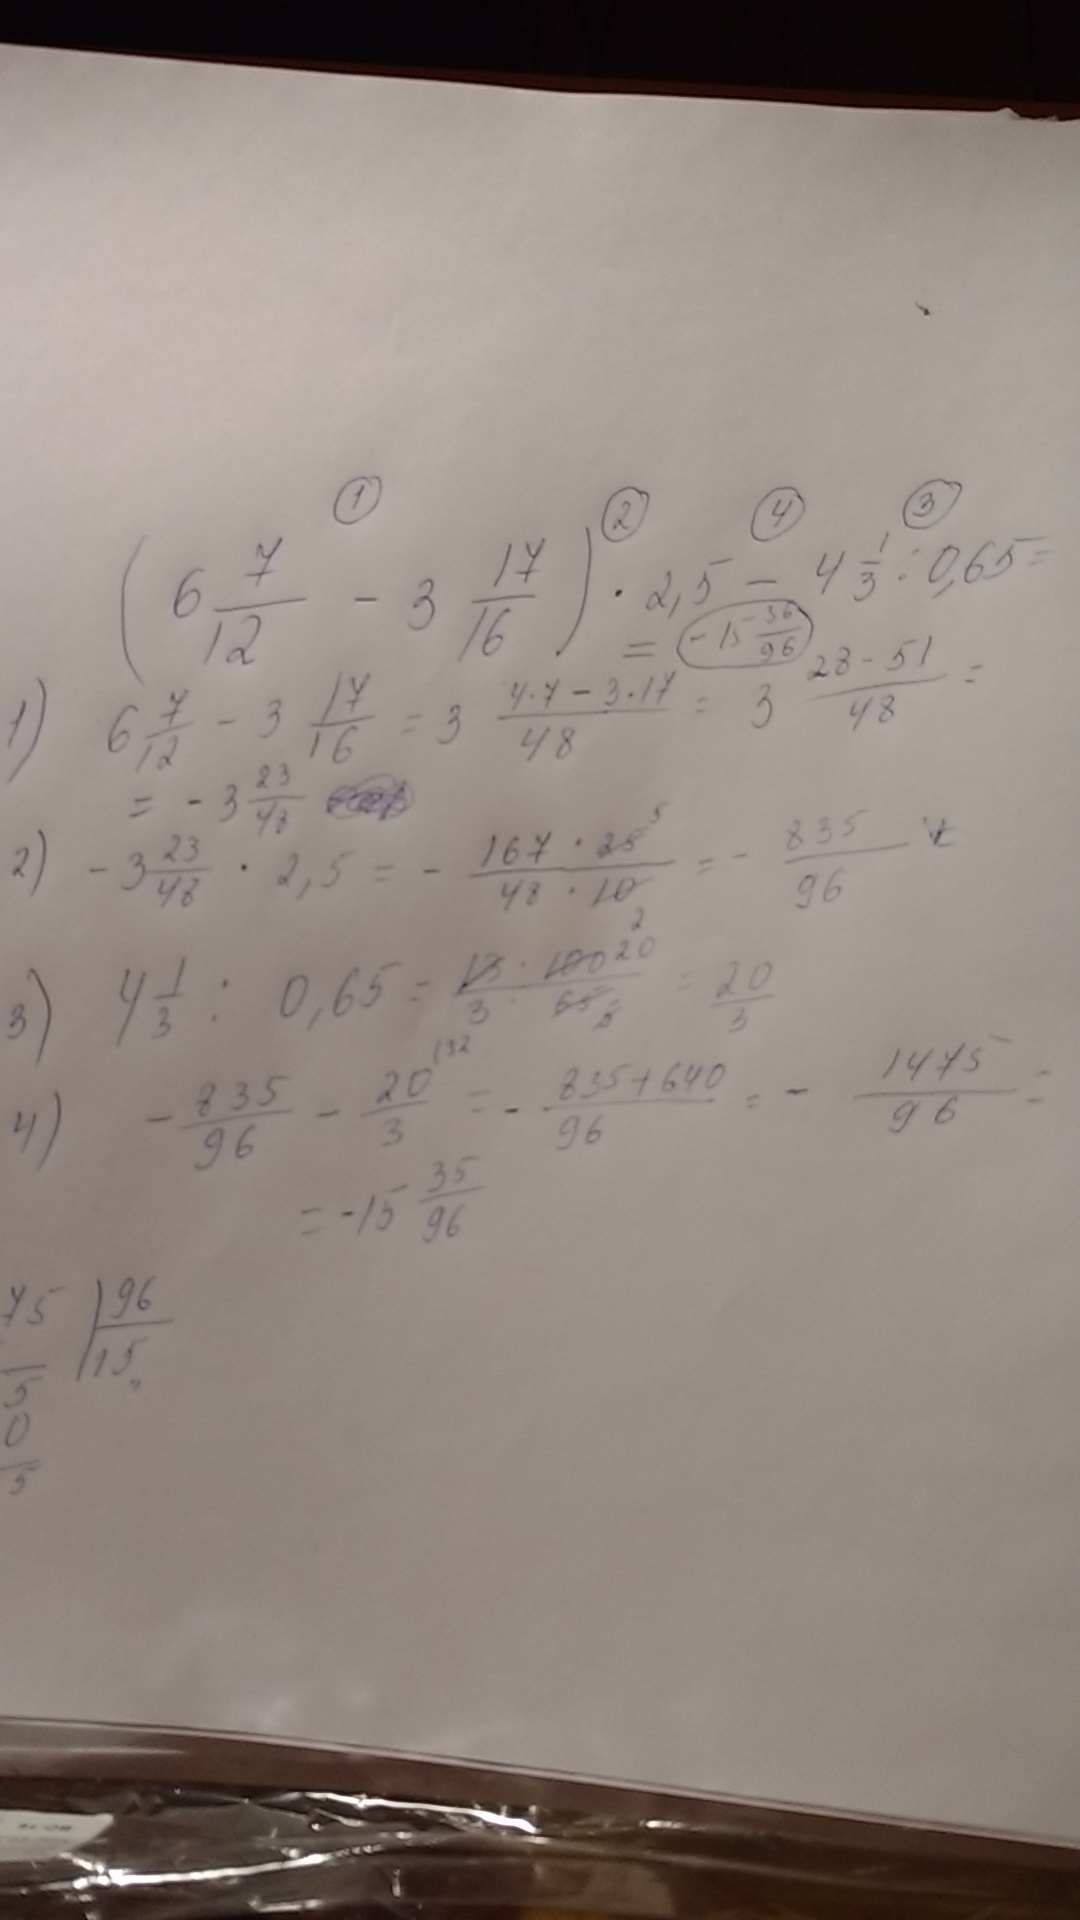 ① ② ④ ③
(6 7/12 - 3 17/16) · 2,5 - 4 1/3 : 0,65 =
= -15 36/96
1) 6 7/12 - 3 17/16 = 3 (4·7 - 3·17)/48 = 3 (28 - 51)/48 =
= - 3 23/48
2) - 3 23/48 · 2,5 = - (167 · 25 5)/(48 · 10 2) = - 835/96
3) 4 1/3 : 0,65 = (13 · 100 20)/(3 · 65) = 20/3
4) - 835/96 - 20/3 (32 = - (835+640)/96 = - 1475/96 =
= -15 35/96
75 | 96
5 | 15
0
5